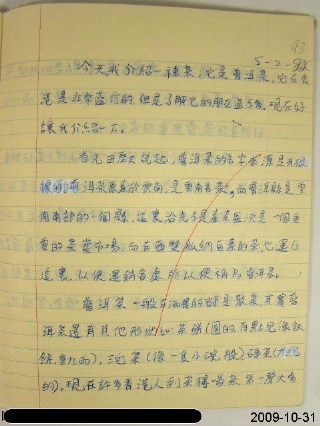 93
5-2-95
今天我介紹一種茶,它是普洱茶,它在香
港是非常盛行的,但是了解它的朋友並不多,現在好
讓我介紹一下。
首先由歷史說起,普洱茶的名字來源是有根
據的,普洱茶原產於雲南,是雲南名茶,而普洱縣是雲
南南部的一個縣,這裏沿先是產茶區,但是一個重
要的茶葉市場,而在西雙版納區產的茶,它運往
這裏,以便運銷各處,所以便稱為普洱茶。
普洱茶一般在酒樓的都是散茶,其實普
洱茶還有其他形狀如茶餅(圓的,有點兒像鐵
餅,重九両),沱茶(像一隻小碗般)磚茶(
的),現在許多香港人到茶樓喝茶,第一聲大多
2009-10-31